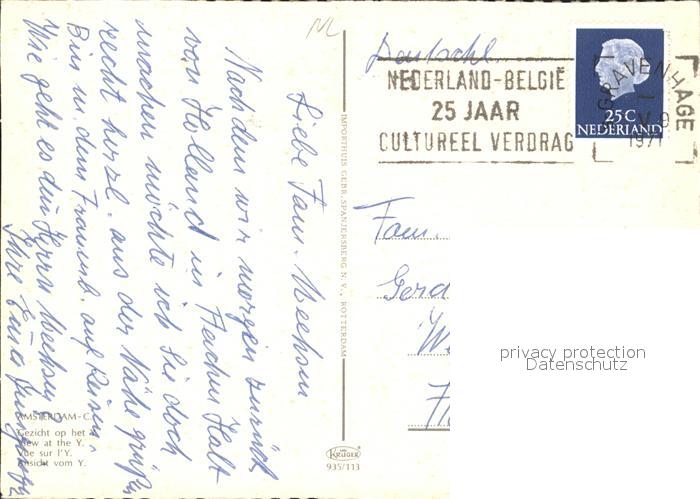 NL
Deutschl.
NEDERLAND-BELGIË
25 JAAR
CULTUREEL VERDRAG
'S GRAVENHAGE
1971
25 C
NEDERLAND
Liebe Fam. Meehsen
Nachdem wir morgen zurück
von Holland in Aachen Halt
machen möchte ich Sie doch
recht herzl. aus der Nähe grüßen
Bin m. dem Frauenb. auf Reisen
Wie geht es den Herrn
Ihre
Fam.
IMPORTHUIS GEBR. SPANJERSBERG N.V., ROTTERDAM
AMSTERDAM-C.
Gezicht op het Y.
View at the Y.
Vue sur l'Y.
Ansicht vom Y.
KRÜGER
935/113
privacy protection
Datenschutz